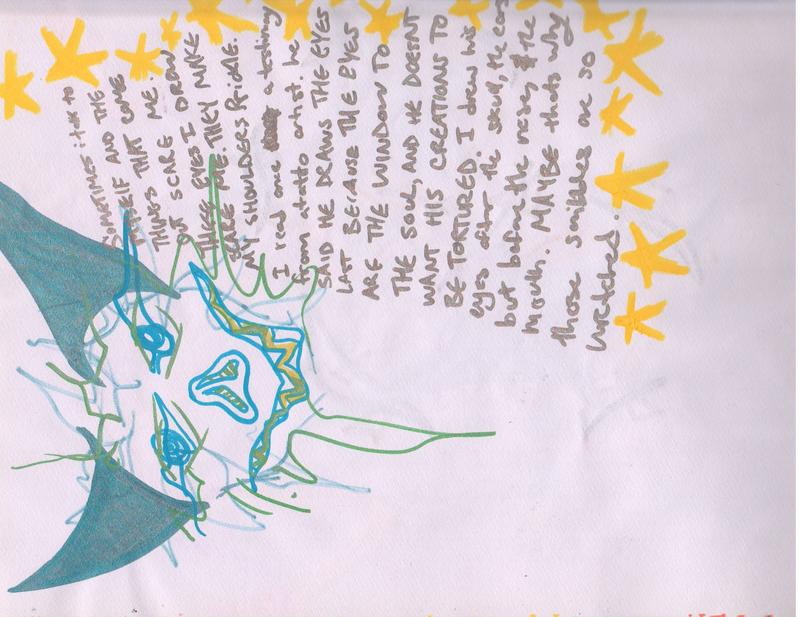 SOMETIMES its to
MYSELF AND THE
THINGS THAT COME
OUT SCARE ME.
THREE EYES I DRAW
SCARE ME. THEY MAKE
MY SHOULDERS BRIDLE.
I read one a testimony
from a tatto artist. he
SAID HE DRAWS THE EYES
LAST BECAUSE THE EYES
ARE THE WINDOW TO
THE SOUL, AND HE DOESNT
WANT HIS CREATIONS TO
BE TORTURED. I drew his
eyes after the skull, the
but before the nose, & the
mouth. MAYBE thats why
those scribbles are so
wretched.